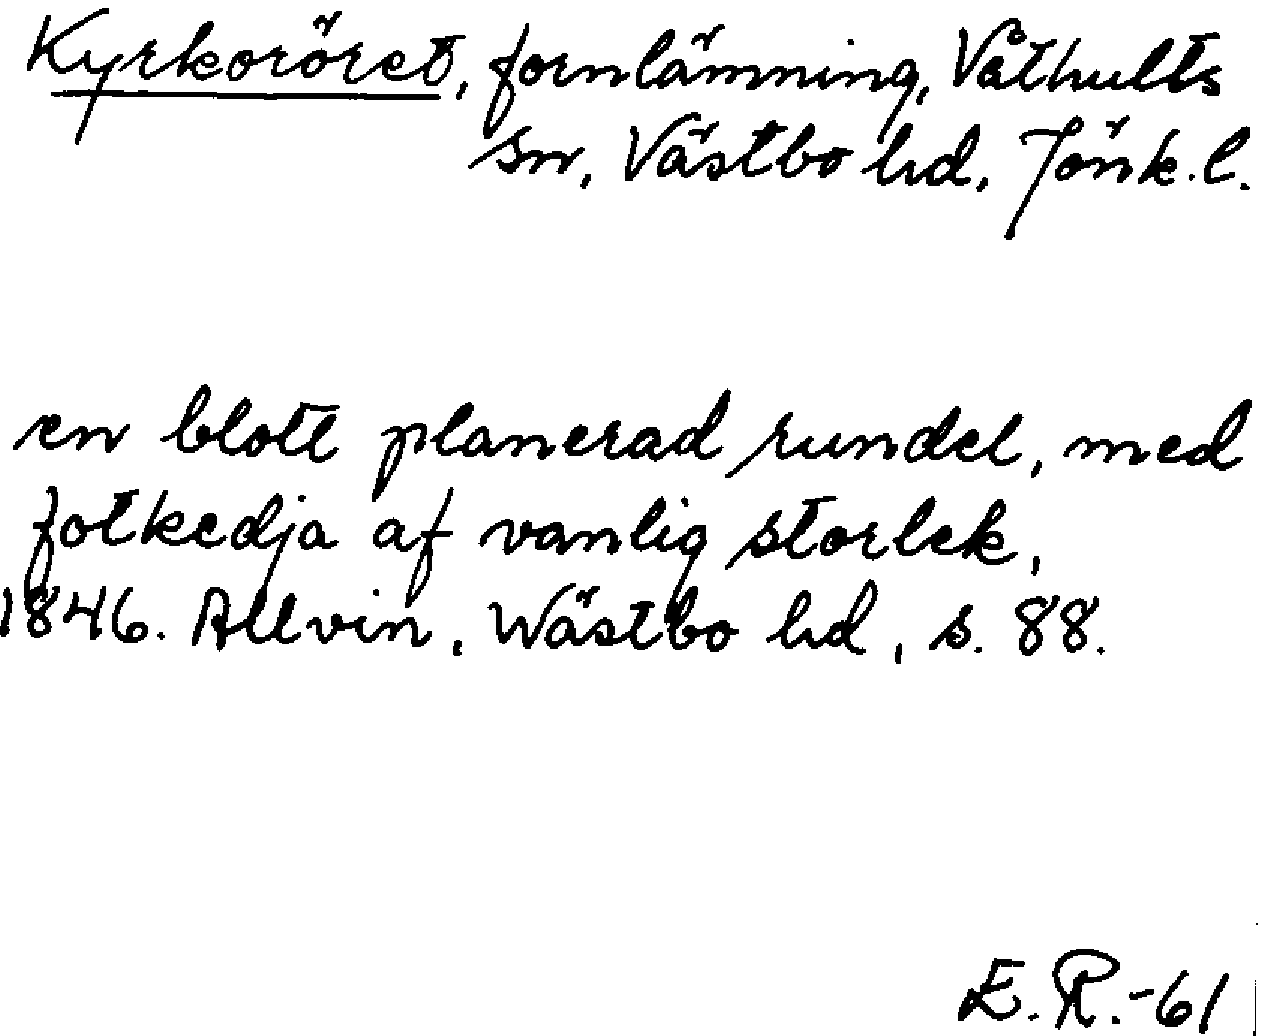 Kyrkoröret, fornlämning, Våthults
sn, Västbo hd, Jönk. l.
en blott planerad rundel, med
fotkedja af vanlig storlek,
1846. Allvin, Wästbo hd, s. 88.
E. R. -61